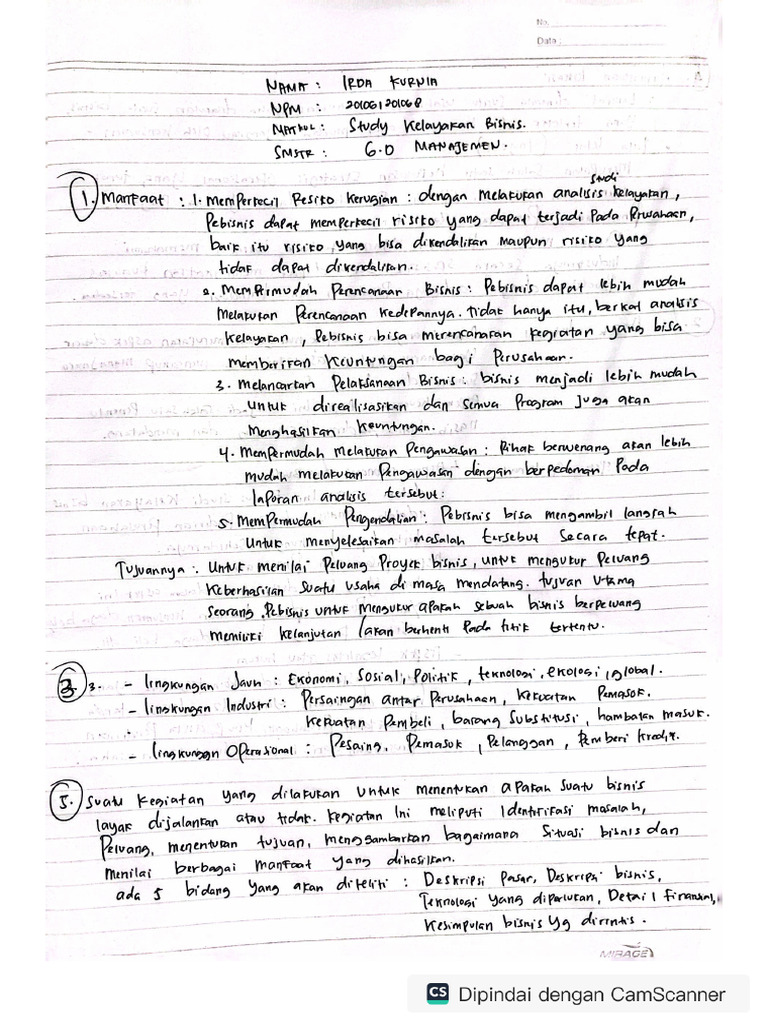 No.
Date :
NAMA : IRDA KURNIA
NPM : 201061201068
MATKUL : Study Kelayakan Bisnis.
SMSTR : 6.D MANAJEMEN.
1. Manfaat : 1. Memperkecil Resiko Kerugian : dengan Melakukan analisis studi Kelayakan,
Pebisnis dapat memperkecil risiko yang dapat terjadi Pada Perusahaan,
baik itu risiko yang bisa dikendalikan maupun risiko yang
tidak dapat dikendalikan.
2. Mempermudah Perencanaan Bisnis : Pebisnis dapat lebih mudah
Melakukan Perencanaan Kedepannya. tidak hanya itu, berkat analisis
Kelayakan, Pebisnis bisa merencanakan kegiatan yang bisa
memberikan Keuntungan bagi Perusahaan.
3. Melancarkan Pelaksanaan Bisnis : bisnis menjadi lebih mudah
untuk direalisasikan dan semua Program Juga akan
Menghasilkan Keuntungan.
4. Mempermudah Melakukan Pengawasan : Pihak berwenang akan lebih
mudah melakukan Pengawasan dengan berpedoman Pada
laporan analisis tersebut.
5. Mempermudah Pengendalian : Pebisnis bisa mengambil langkah
Untuk menyelesaikan masalah tersebut secara tepat.
Tujuannya : Untuk menilai Peluang Proyek bisnis, untuk mengukur Peluang
Keberhasilan Suatu usaha di masa mendatang. tujuan utama
seorang Pebisnis untuk mengukur apakah sebuah bisnis berpeluang
memiliki kelanjutan / akan berhenti Pada titik tertentu.
3. - lingkungan Jauh : Ekonomi, Sosial, Politik, teknologi, ekologi, global.
- lingkungan Industri : Persaingan antar Perusahaan, Kekuatan Pemasok,
Kekuatan Pembeli, barang Substitusi, hambatan masuk.
- lingkungan Operasional : Pesaing, Pemasok, Pelanggan, Pemberi kredit.
5. Suatu Kegiatan yang dilakukan Untuk menentukan apakah suatu bisnis
layak dijalankan atau tidak. Kegiatan Ini meliputi Identifikasi masalah,
Peluang, menentukan tujuan, menggambarkan bagaimana Situasi bisnis dan
menilai berbagai manfaat yang dihasilkan.
ada 5 bidang yang akan diteliti : Deskripsi Pasar, Deskripsi bisnis,
Teknologi yang diperlukan, Detail Finansial,
Kesimpulan bisnis yg dirintis.
MIRAGE
CS Dipindai dengan CamScanner